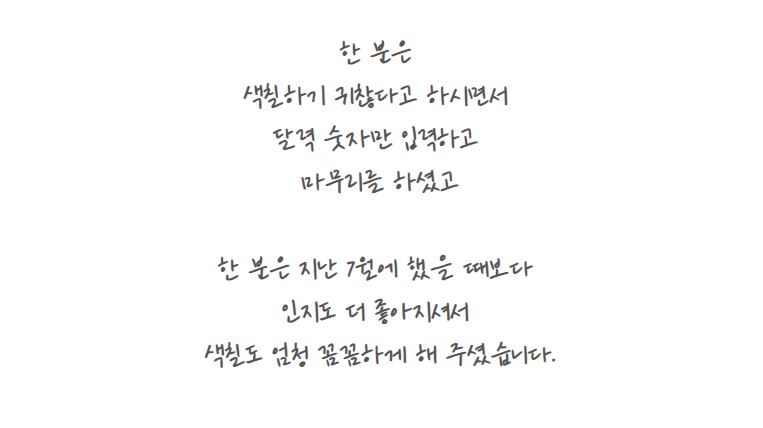 한 분은
색칠하기 귀찮다고 하시면서
달력 숫자만 입력하고
마무리를 하셨고
한 분은 지난 7월에 했을 때보다
인지도 더 좋아지셔서
색칠도 엄청 꼼꼼하게 해 주셨습니다.